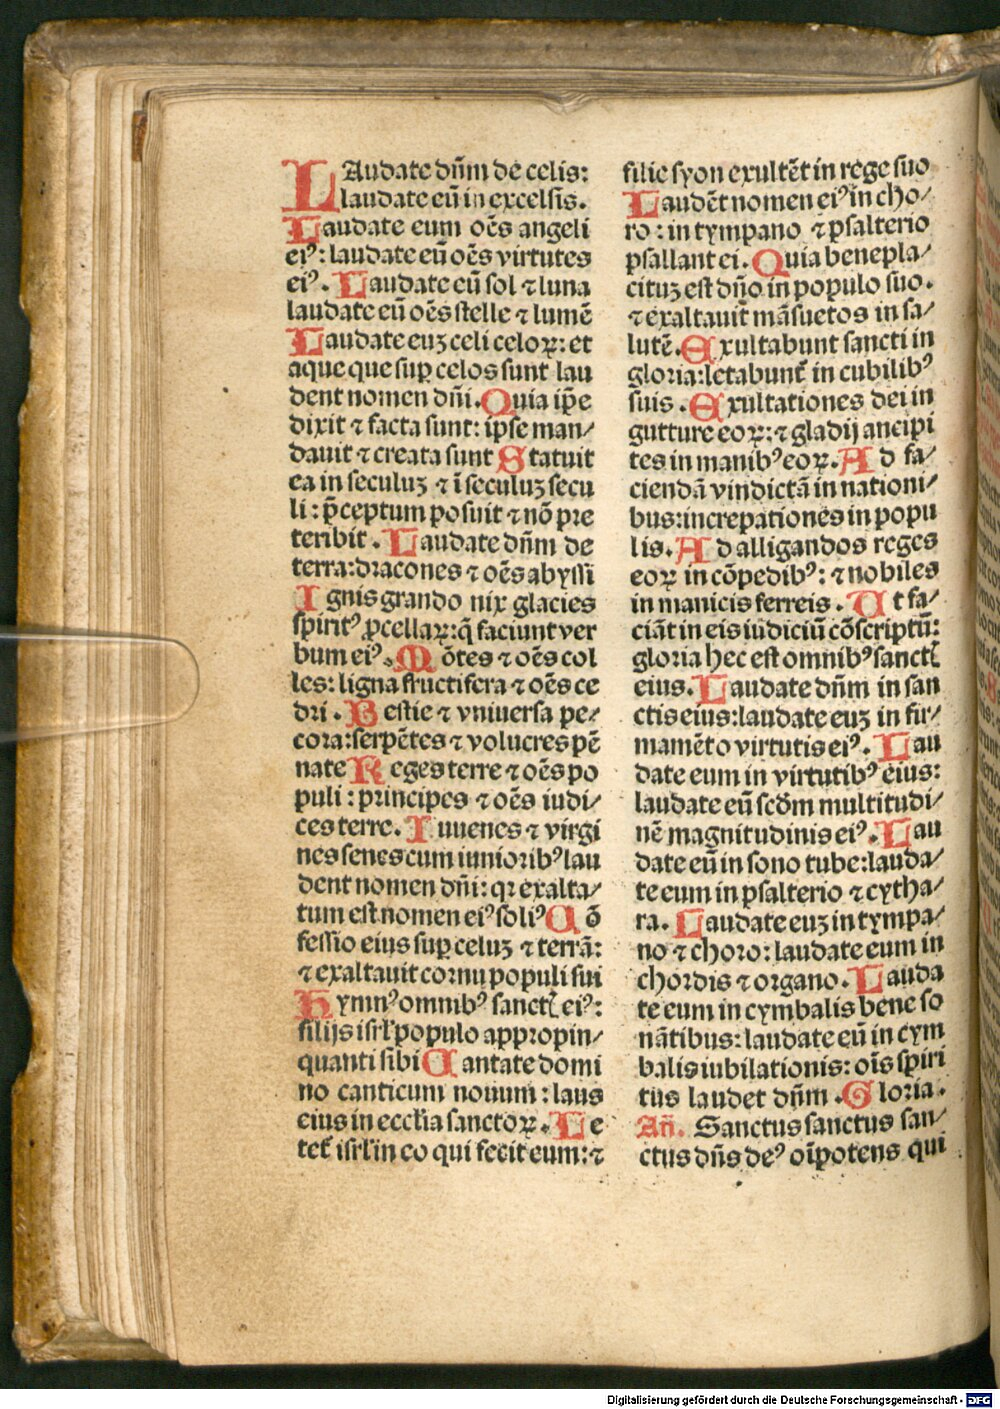 LAudate dn̄m de celis:
laudate eū in excelsis.
Laudate eum oēs angeli
eiꝰ: laudate eū oēs virtutes
eiꝰ. Laudate eū sol ⁊ luna
laudate eū oēs stelle ⁊ lumē
Laudate euꝫ celi celoꝝ: et
aque que suꝑ celos sunt lau
dent nomen dn̄i. Quia ip̄e
dixit ⁊ facta sunt: ipse man/
dauit ⁊ creata sunt Statuit
ea in seculuꝫ ⁊ ī seculuꝫ secu
li: p̄ceptum posuit ⁊ nō pre
teribit. Laudate dn̄m de
terra: dracones ⁊ oēs abyssi
Ignis grando nix glacies
spiritꝰ ꝓcellaꝝ: q̄ faciunt ver
bum eiꝰ. Mōtes ⁊ oēs col
les: ligna fructifera ⁊ oēs ce
dri. Bestie ⁊ vniuersa pe/
cora: serpētes ⁊ volucres pē
nate Reges terre ⁊ oēs po
puli: principes ⁊ oēs iudi/
ces terre. Iuuenes ⁊ virgi
nes senes cum iunioribꝰ lau
dent nomen dn̄i: qꝛ exalta/
tum est nomen eiꝰ soliꝰ Cō
fessio eius suꝑ celuꝫ ⁊ terrā:
⁊ exaltauit cornu populi sui
Hymnꝰ omnibꝰ sanctꝭ eiꝰ:
filijs isrl̄ populo appropin/
quanti sibi Cantate domi
no canticum nouum: laus
eius in eccl̄ia sanctoꝝ. Le
tet᷑ isrl̄ in eo qui fecit eum: ⁊
filie syon exultēt in rege suo
Laudēt nomen eiꝰ in cho/
ro: in tympano ⁊ psalterio
psallant ei. Quia benepla/
cituꝫ est dn̄o in populo suo.
⁊ exaltauit māsuetos in sa/
lutē. Exultabunt sancti in
gloria: letabunt᷑ in cubilibꝰ
suis. Exultationes dei in
gutture eoꝝ: ⁊ gladij ancipi
tes in manibꝰ eoꝝ. Ad fa/
ciendā vindictā in nationi/
bus: increpationes in popu
lis. Ad alligandos reges
eoꝝ in cōpedibꝰ: ⁊ nobiles
in manicis ferreis. Ut fa/
ciāt in eis iudiciū cōscriptū:
gloria hec est omnibꝰ sanctꝭ
eius. Laudate dn̄m in san
ctis eius: laudate euꝫ in fir/
mamēto virtutis eiꝰ. Lau
date eum in virtutibꝰ eius:
laudate eū scd̄m multitudi/
nē magnitudinis eiꝰ. Lau
date eū in sono tube: lauda/
te eum in psalterio ⁊ cytha/
ra. Laudate euꝫ in tympa/
no ⁊ choro: laudate eum in
chordis ⁊ organo. Lauda
te eum in cymbalis bene so
nātibus: laudate eū in cym
balis iubilationis: oīs spiri
tus laudet dn̄m. Gloria.
An̄. Sanctus sanctus san/
ctus dn̄s deꝰ oīpotens qui
Digitalisierung gefördert durch die Deutsche Forschungsgemeinschaft - DFG